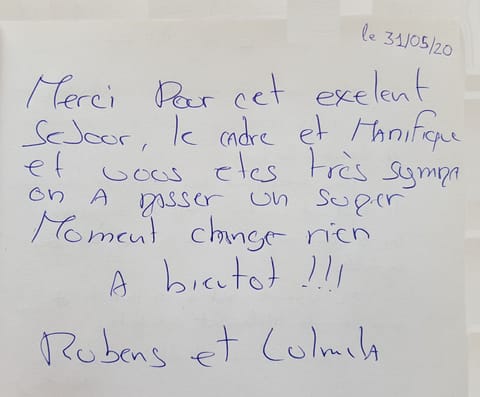 le 31/05/20
Merci Pour cet exelent
SeJour, le cadre et Manifique
et vous etes très sympa
on A passer un super
Moment change rien
A bientot !!!
Rubens et Lulmila